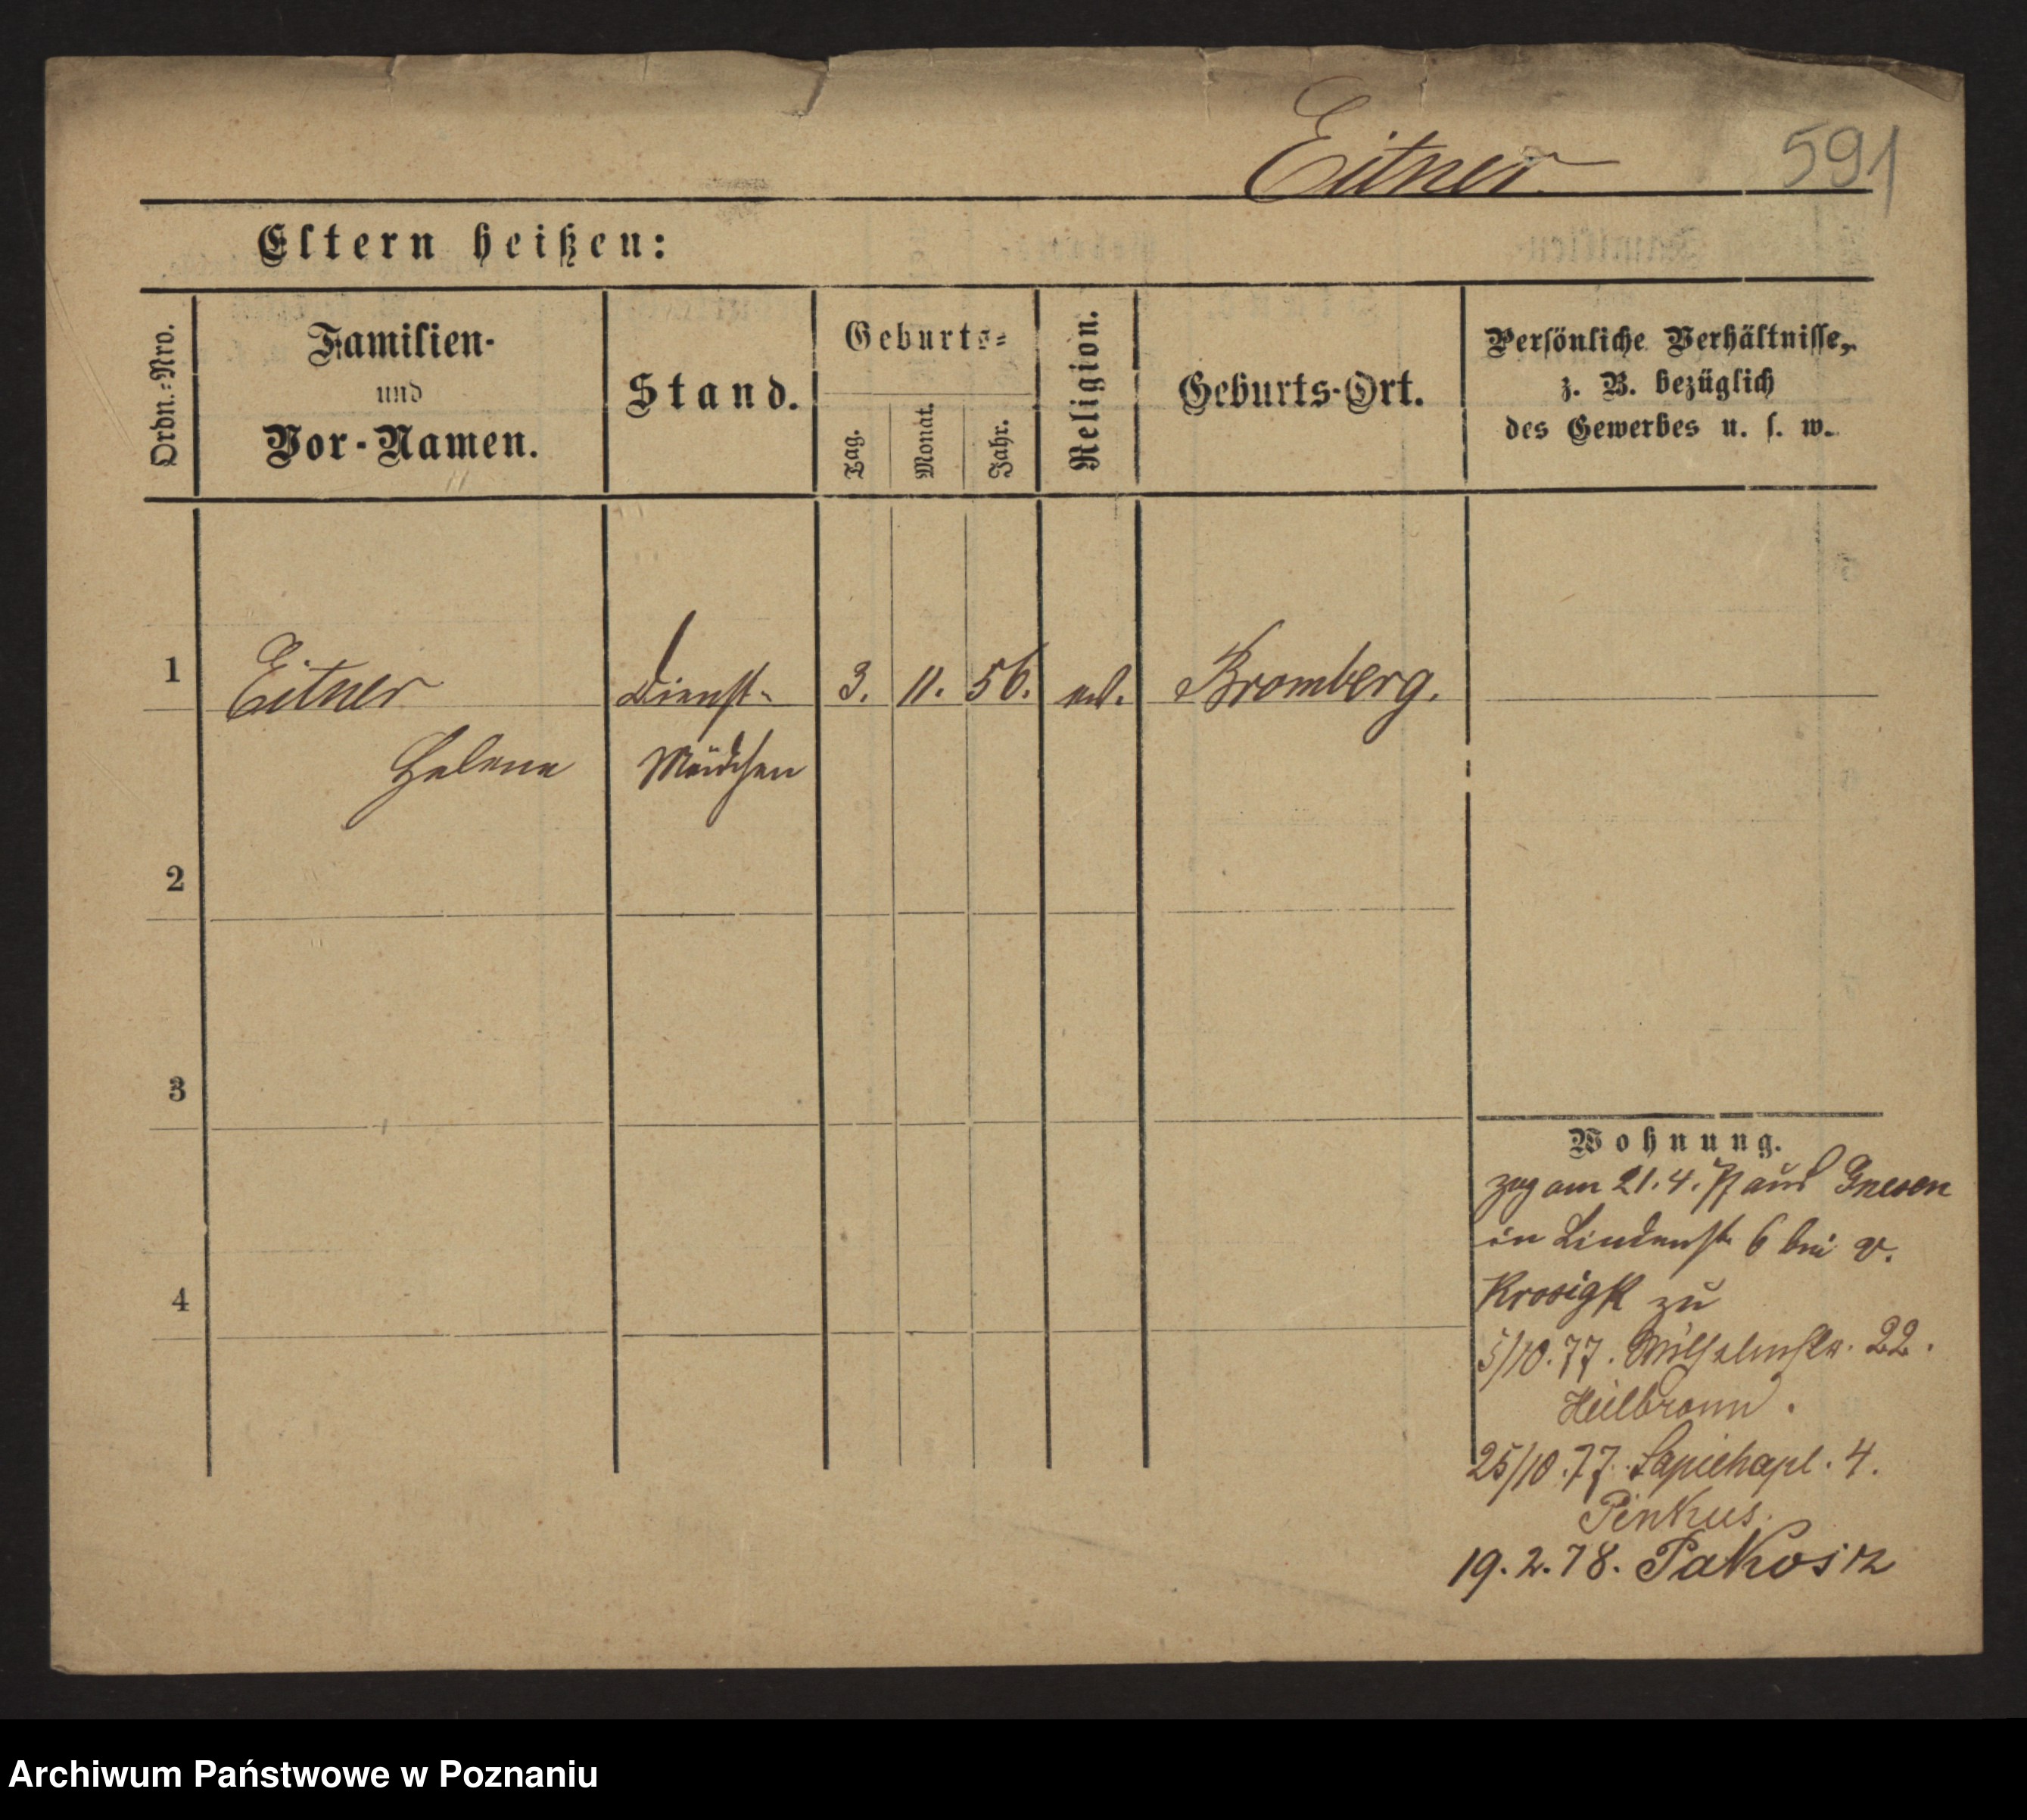 Eitner
591
Eltern heißen:
Ordn.-Nro.
Familien-
und
Vor-Namen.
Stand.
Geburts-
Tag.
Monat.
Jahr.
Religion.
Geburts-Ort.
Persönliche Verhältnisse,
z. B. bezüglich
des Gewerbes u. s. w.
1 Eitner Dienst- 3. 11. 56. Bromberg.
Helene Mädchen
2
3
4
Wohnung.
zog am 21.4.77 aus Gnesen
in Lindenstr 6 bei v.
Krosigk zu
5/10.77. Wilhelmstr. 22.
Heilbronn.
25/10.77. Sapiehapl. 4.
Pinkus.
19.2.78. Pakosz
Archiwum Państwowe w Poznaniu